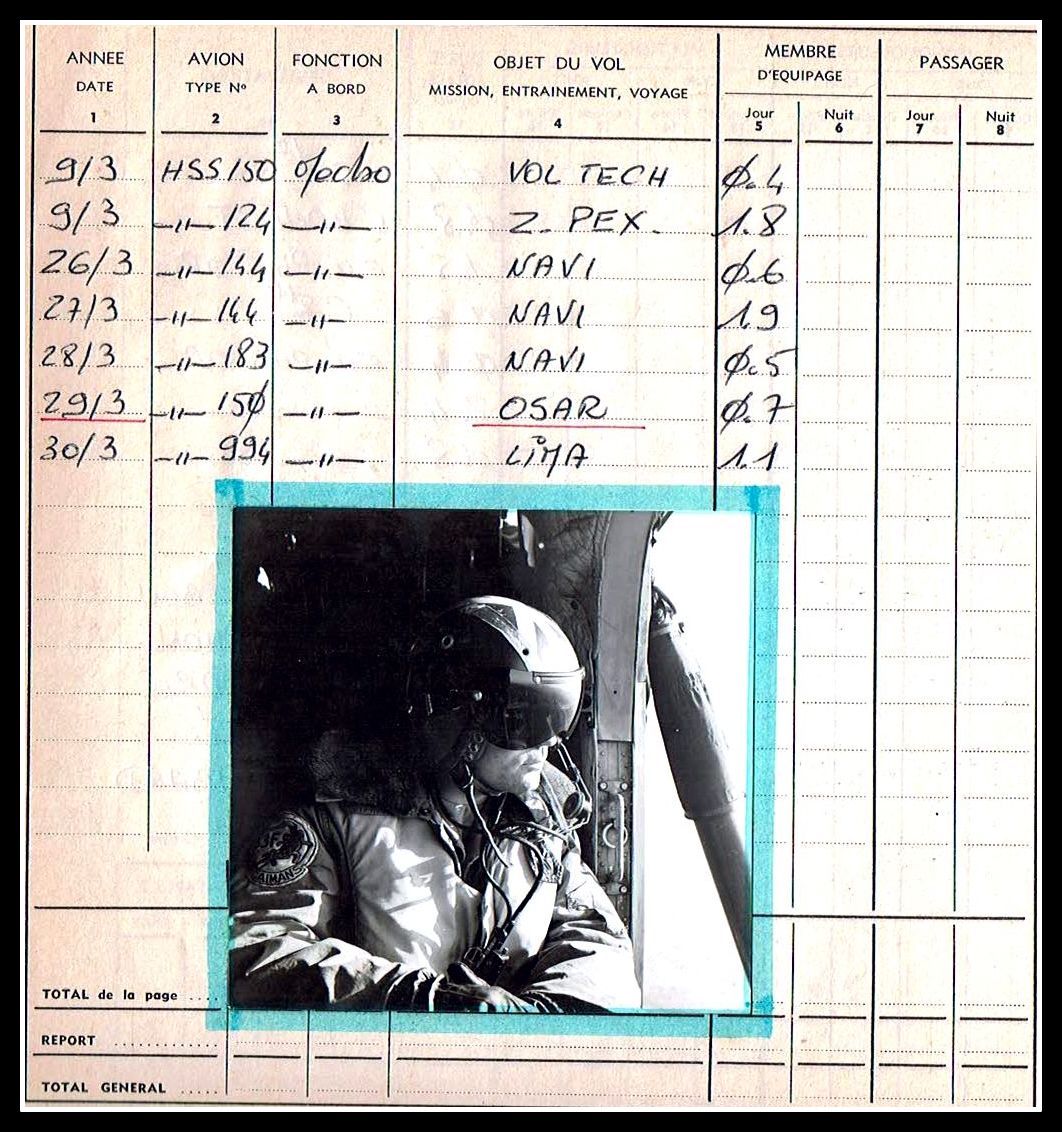 ANNEE AVION FONCTION OBJET DU VOL MEMBRE PASSAGER
DATE TYPE Nº A BORD MISSION, ENTRAINEMENT, VOYAGE D'EQUIPAGE
Jour Nuit Jour Nuit
1 2 3 4 5 6 7 8
9/3 HSS 150 VOL TECH Ø.4
9/3 —"— 124 —"— Z. PEX. 1.8
26/3 —"— 144 —"— NAVI Ø.6
27/3 —"— 144 —"— NAVI 1.9
28/3 —"— 183 —"— NAVI Ø.5
29/3 —"— 15Ø —"— OSAR Ø.7
30/3 —"— 994 —"— LIMA 1.1
TOTAL de la page ....
REPORT ............
TOTAL GENERAL .....